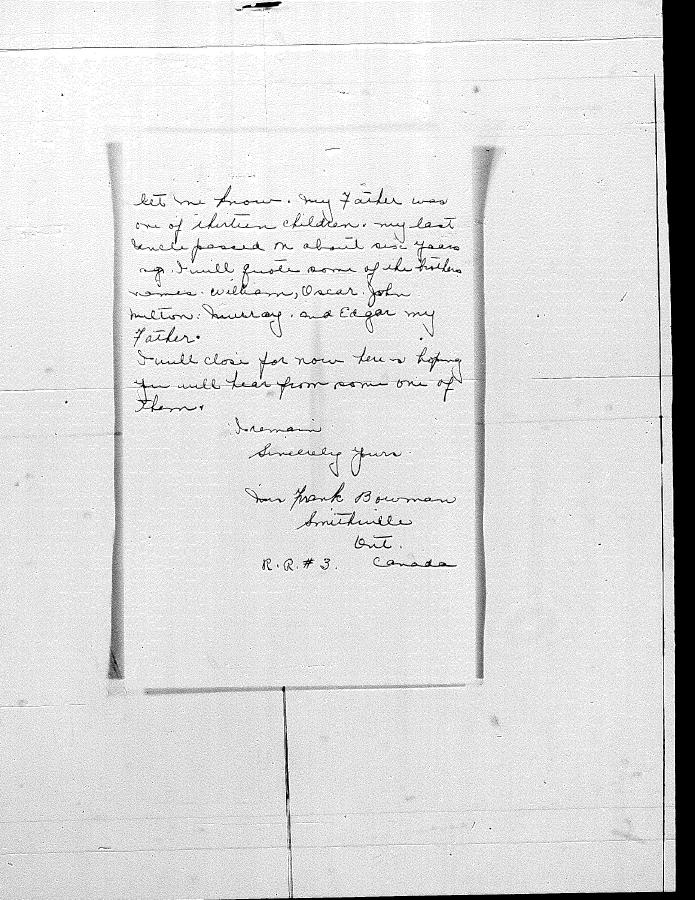 let me know. My Father was
one of thirteen children. My last
Uncle passed on about six years
ago. I will quote some of the brothers
names. William, Oscar. John
Milton. Murray. and Edgar my
Father.
I will close for now here is hoping
you will hear from some one of
them.
I remain
Sincerely Yours
Mrs Frank Bowman
Smithville
Ont.
R.R. # 3. Canada